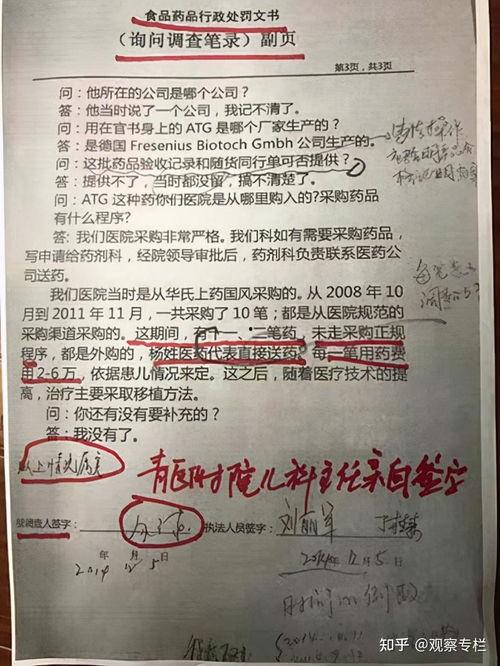 食品药品行政处罚文书
（询问调查笔录）副页
第3页，共3页
问：他所在的公司是哪个公司？
答：他当时说了一个公司，我记不清了。
问：用在官书身上的 ATG 是哪个厂家生产的？
答：是德国 Fresenius Biotoch Gmbh 公司生产的。
问：这批药品验收记录和随货同行单可否提供？
答：提供不了，当时都没留，搞不清楚了。
问：ATG 这种药你们医院是从哪里购入的?采购药品
有什么程序?
答: 我们医院采购非常严格。我们科如有需要采购药品，
写申请给药剂科，经院领导审批后，药剂科负责联系医药公
司送药。
我们医院当时是从华氏上药国风采购的。从 2008 年 10
月到 2011 年 11 月，一共采购了 10 笔；都是从医院规范的
采购渠道采购的。这期间，有十一、二笔药，未走采购正规
程序，都是外购的，杨姓医药代表直接送药。每一笔用药费
用 2-6 万，依据患儿情况来定。这之后，随着医疗技术的提
高，治疗主要采取移植方法。
问：你还有没有要补充的？
答：我没有了。
以上情况属实
青医附院儿科主任亲自签字
被调查人签字：
执法人员签字：刘丽军
年 月 日
2014 12 5
2014年12月5日
知乎 @观察专栏